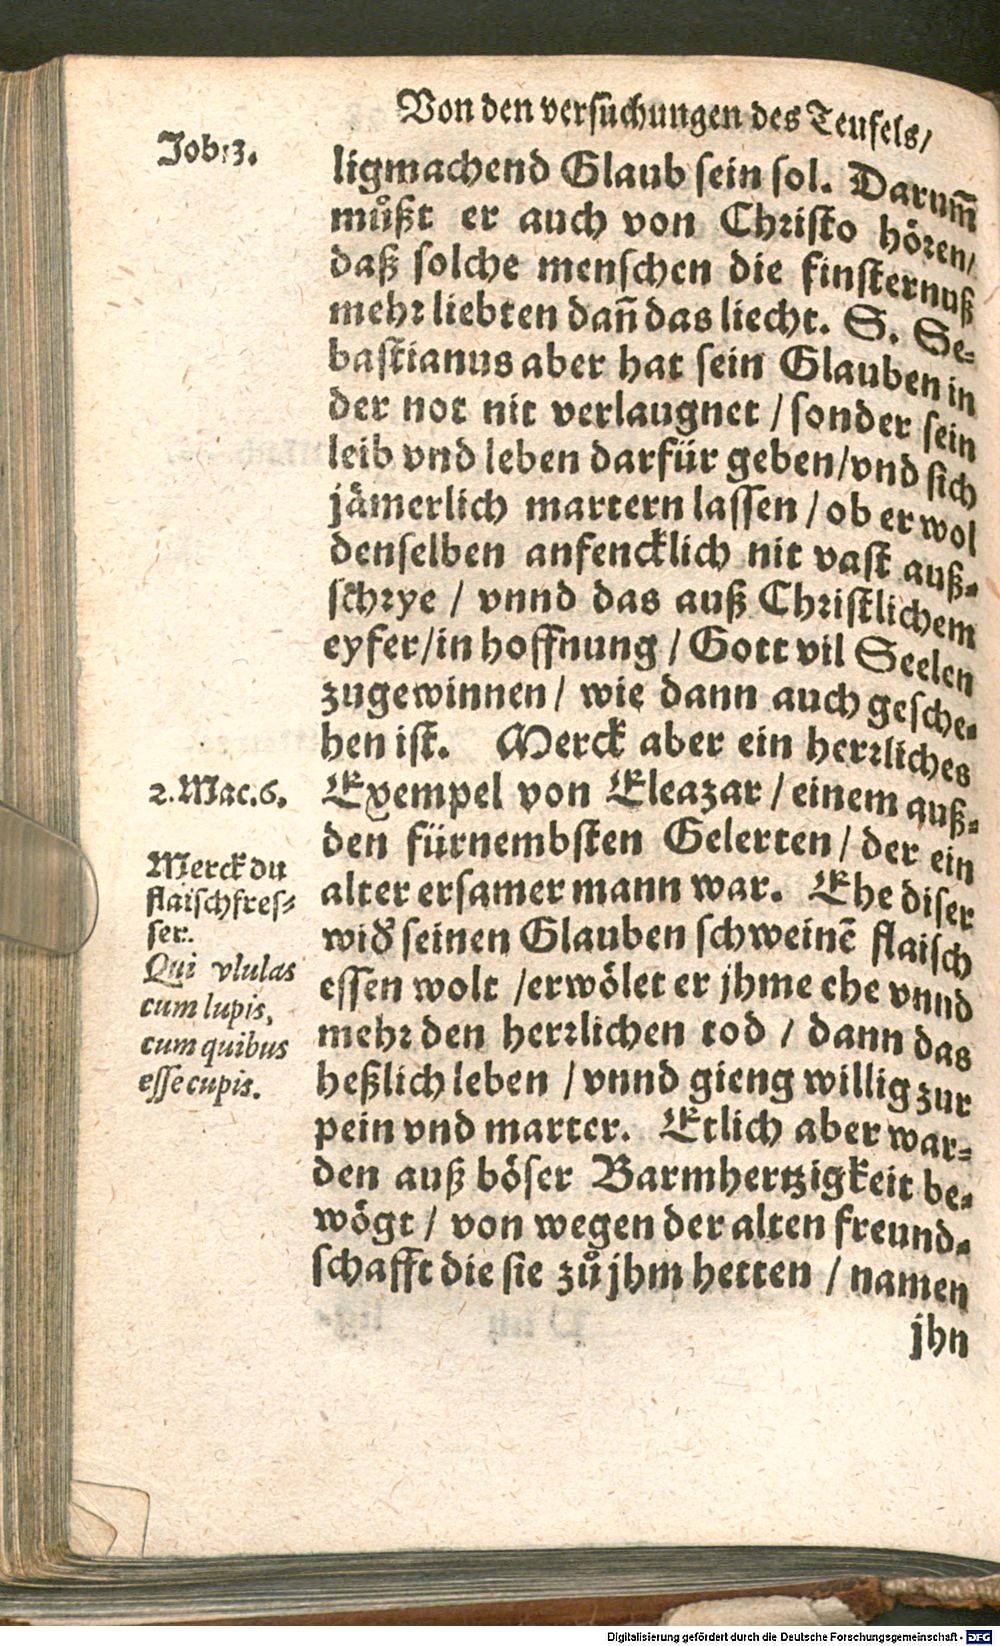 Von den versuchungen des Teufels/
Job: 3.
ligmachend Glaub sein sol. Darum̃
můßt er auch von Christo hören/
daß solche menschen die finsternuß
mehr liebten dañ das liecht. S. Se-
bastianus aber hat sein Glauben in
der not nit verlaugnet / sonder sein
leib vnd leben darfür geben/vnd sich
jämerlich martern lassen / ob er wol
denselben anfencklich nit vast auß-
schrye / vnnd das auß Christlichem
eyfer/in hoffnung / Gott vil Seelen
zugewinnen/ wie dann auch gesche-
hen ist. Merck aber ein herrliches
2. Mac. 6.
Exempel von Eleazar / einem auß-
den fürnembsten Gelerten / der ein
alter ersamer mann war. Ehe diser
widᷣ seinen Glauben schweinẽ flaisch
essen wolt /erwölet er jhme ehe vnnd
mehr den herrlichen tod / dann das
heßlich leben / vnnd gieng willig zur
pein vnd marter. Etlich aber war-
den auß böser Barmhertzigkeit be-
wögt / von wegen der alten freund-
schafft die sie zů jhm hetten / namen
jhn
Merck du
flaischfres-
ser.
Qui vlulas
cum lupis,
cum quibus
esse cupis.
Digitalisierung gefördert durch die Deutsche Forschungsgemeinschaft - DFG